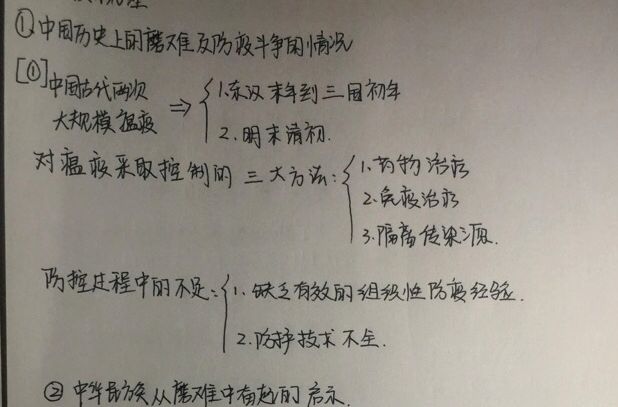 ①中国历史上的磨难及防疫斗争的情况
[①]中国古代两次
大规模瘟疫 ⇒ {1.东汉末年到三国初年
2.明末清初.
对瘟疫采取控制的三大方法:{1.药物治疗
2.免疫治疗
3.隔离传染源.
防控过程中的不足:{1.缺乏有效的组织性防疫经验.
2.防护技术不全.
②中华民族从磨难中奋起的启示.